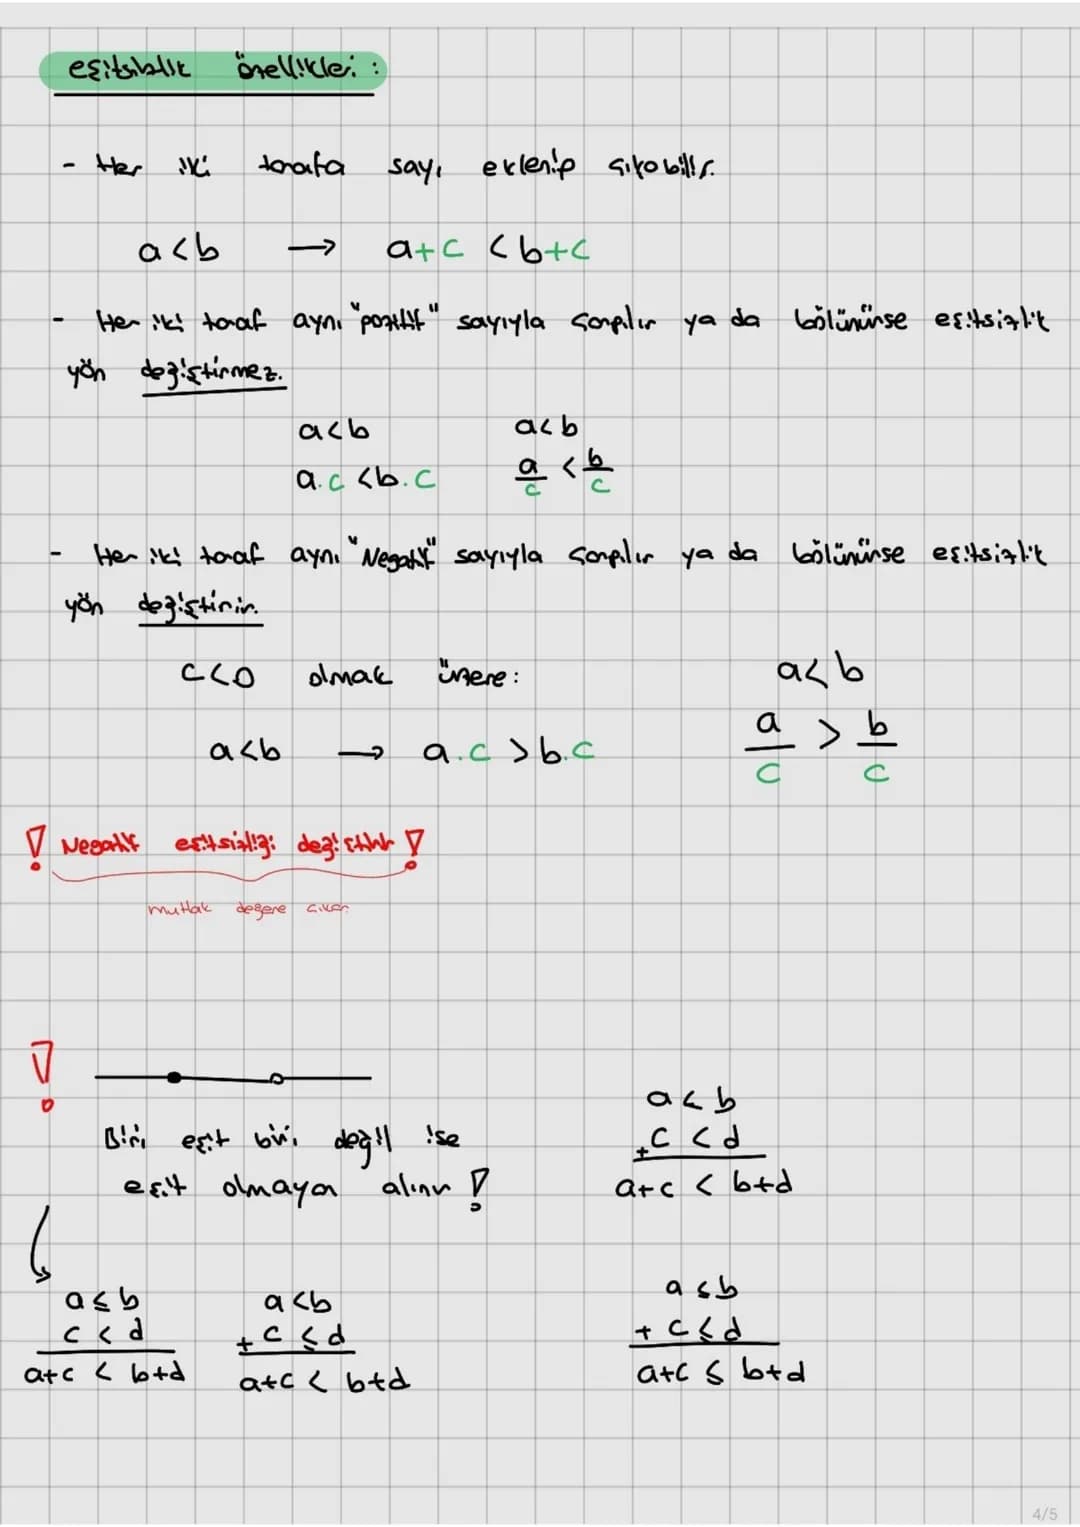 eşitsizlik özellikleri :
- Her iki tarafa sayı eklenip çıkabilir.
a<b → a+c < b+c
- Her iki taraf aynı "pozitif" sayıyla çarpılır ya da bölünürse eşitsizlik
yön değiştirmez.
a<b a<b
a.c <b.c a/c < b/c
- Her iki taraf aynı "Negatif" sayıyla çarpılır ya da bölünürse eşitsizlik
yön değiştirir.
c<0 olmak üzere : a<b
a<b → a.c >b.c a/c > b/c
! Negatif eşitsizliği değiştirir !
mutlak değere çıkar
!
Biri eşit biri değil ise
eşit olmayan alınır !
a<b
+c <d
a+c < b+d
a≤b a<b a≤b
c < d + c ≤d + c≤d
a+c < b+d a+c < b+d a+c ≤ b+d
4/5